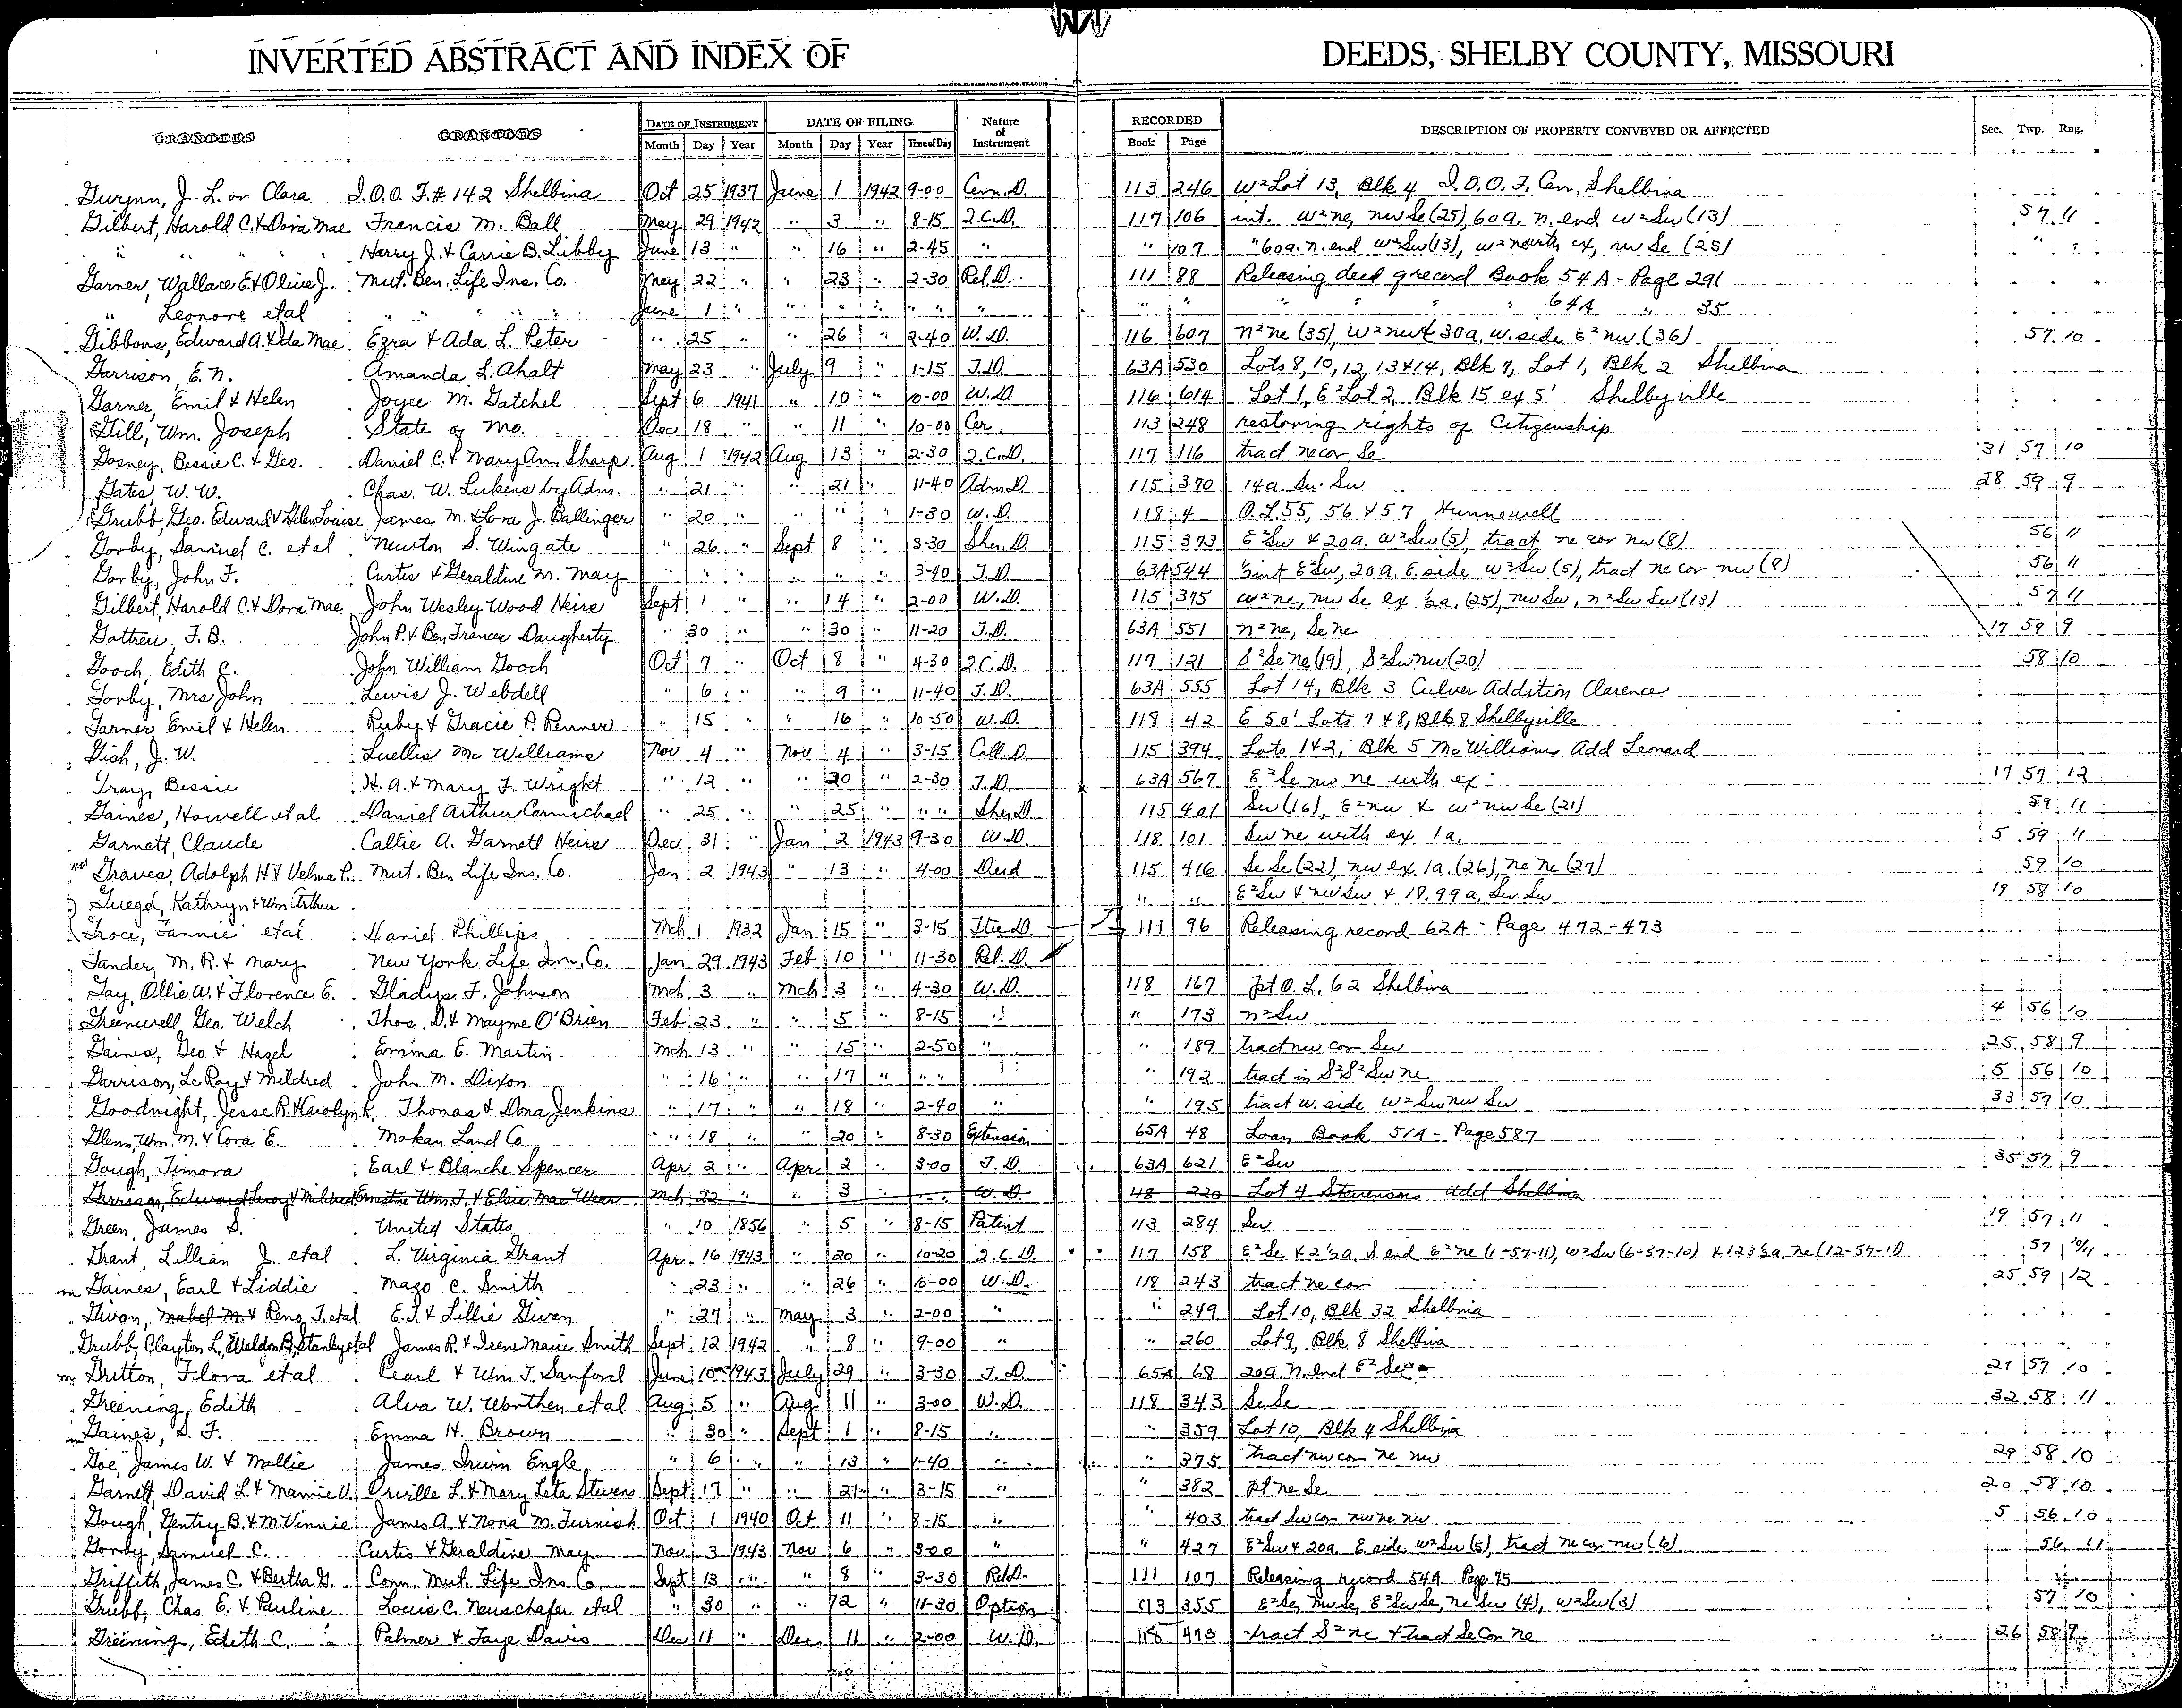 INVERTED ABSTRACT AND INDEX OF DEEDS, SHELBY COUNTY, MISSOURI
GEO. D. BARNARD STA. CO. ST. LOUIS
GRANTEES GRANTORS DATE OF INSTRUMENT DATE OF FILING Nature of Instrument RECORDED DESCRIPTION OF PROPERTY CONVEYED OR AFFECTED Sec. Twp. Rng.
Month Day Year Month Day Year Time of Day Book Page
Gwynn, J. L. or Clara I.O.O.F.# 142 Shelbina Oct 25 1937 June 1 1942 9-00 Cem. D. 113 246 W² Lot 13, Blk 4 I.O.O.F. Cem, Shelbina
Gilbert, Harold C. & Dora Mae Francis M. Ball May 29 1942 " 3 " 8-15 Q.C.D. 117 106 int. W² ne, nw Se (25), 60a. n. end W² Sw (13) 57 11
" " " " Harry J. & Carrie B. Libby June 13 " " 16 " 2-45 " " 107 " 60a. n. end W² Sw (13), W² ne with ex, nw Se (25) " "
Garner, Wallace E. & Olive J. Mut. Ben. Life Ins. Co. May 22 " " 23 " 2-30 Rel. D. 111 88 Releasing deed of record Book 54A - Page 291
" Leonore etal " " " " June 1 " " " " " " " " " " " " 64A " 35
Gibbons, Edward A. & Ida Mae Ezra & Ada L. Peter " 25 " 26 " 2-40 W. D. 116 607 n² ne (35), W² nw & 30a, W. side E² nw (36) 57 10
Garrison, E. N. Amanda L. Ahalt May 23 " July 9 " 1-15 T. D. 63A 530 Lots 8, 10, 12, 13 & 14, Blk 7, Lot 1, Blk 2 Shelbina
Garner, Emil & Helen Joyce M. Gatchel Sept 6 1941 " 10 " 10-00 W. D. 116 614 Lot 1, E² Lot 2, Blk 15 ex 5' Shelbyville
Gill, Wm. Joseph State of Mo. Dec 18 " " 11 " 10-00 Cer. 113 248 restoring rights of Citizenship
Gosney, Bessie C. & Geo. Daniel C. & Mary Ann Sharp Aug 1 1942 Aug 13 " 2-30 Q.C.D. 117 116 tract ne cor Se 31 57 10
Gates, W. W. Chas. W. Lukens by Adm. " 21 " 21 " 11-40 Adm D. 115 370 14a. Sw Sw 28 59 9
Grubb, Geo. Edward & Helen Louise James M. & Lora J. Ballinger " 20 " " " 1-30 W. D. 118 4 O. L. 55, 56 & 57 Hunnewell
Gorby, Samuel C. etal Newton S. Wingate " 26 " Sept 8 " 3-30 Sher. D. 115 373 E² Sw & 20a. W² Sw (5), tract ne cor nw (8) 56 11
Gorby, John F. Curtis & Geraldine M. May " " " " " 3-40 T. D. 63A 544 int E² Sw, 20a. E. side W² Sw (5), tract ne cor nw (8) 56 11
Gilbert, Harold C. & Dora Mae John Wesley Wood Heirs Sept 1 " " 14 " 2-00 W. D. 115 375 W² ne, nw Se ex ½a. (25), nw Sw, n² Sw Sw (13) 57 11
Gottreu, F. B. John P. & Ben Frances Daugherty " 30 " 30 " 11-20 T. D. 63A 551 n² ne, Se ne 17 59 9
Gooch, Edith C. John William Gooch Oct 7 " Oct 8 " 4-30 Q.C.D. 117 121 S² Se ne (19), S² Sw nw (20) 58 10
Gorby, Mrs John Lewis J. Webdell " 6 " " 9 " 11-40 T. D. 63A 555 Lot 14, Blk 3 Culver Addition Clarence
Garner, Emil & Helen Ruby & Gracie P. Renner " 15 " " 16 " 10-50 W. D. 118 42 E 50' Lots 7 & 8, Blk 8 Shelbyville
Gish, J. W. Luellis McWilliams Nov 4 " Nov 4 " 3-15 Coll. D. 115 394 Lots 1 & 2, Blk 5 McWilliams Add Leonard
Gray, Bessie H. A. & Mary F. Wright " 12 " " 20 " 2-30 T. D. 63A 567 E² Se nw ne with ex 17 57 12
Gaines, Howell etal Daniel Arthur Carmichael " 25 " " 25 " " " Sher D 115 401 Sw (16), E² nw & W² nw Se (21) 59 11
Garnett, Claude Callie A. Garnett Heirs Dec 31 " Jan 2 1943 9-30 W. D. 118 101 Sw ne with ex 1a. 5 59 11
Graves, Adolph H. & Velma P. Mut. Ben Life Ins. Co. Jan 2 1943 " 13 " 4-00 Deed 115 416 Se Se (22), nw ex 1a. (26), ne ne (27) 59 10
Kathryn & Wm Arthur " " E² Sw & nw Sw & 18.99a, Sw Sw 19 58 10
Fannie etal Daniel Phillips Mch 1 1932 Jan 15 " 3-15 111 96 Releasing record 62A - Page 472-473
Gander, M. R. & Mary New York Life Ins. Co. Jan 29 1943 Feb 10 " 11-30 Rel. D.
Gay, Ollie W. & Florence E. Gladys F. Johnson Mch 3 " Mch 3 " 4-30 W. D. 118 167 pt O. L. 62 Shelbina
Greenwell, Geo. Welch Thos. D. & Mayme O'Brien Feb 23 " " 5 " 8-15 " " 173 n² Sw 4 56 10
Gaines, Geo & Hazel Emma E. Martin Mch 13 " " 15 " 2-50 " " 189 tract nw cor Sw 25 58 9
Garrison, Le Roy & Mildred John M. Dixon " 16 " " 17 " " " " " 192 tract in S² S² Sw ne 5 56 10
Goodnight, Jesse R. & Karolyn K. Thomas & Dona Jenkins " 17 " " 18 " 2-40 " " 195 tract W. side W² Sw nw Sw 33 57 10
Glenn, Wm. M. & Cora E. Mokan Land Co. " 18 " 20 " 8-30 Extension 65A 48 Loan Book 51A - Page 587
Gough, Timora Earl & Blanche Spencer Apr 2 " Apr 2 " 3-00 T. D. 63A 621 E² Sw 35 57 9
Garrison, Edward Leroy & Mildred Ernestine Wm. T. & Elsie Mae Wear Mch 22 " " 3 " W. D. 48 220 Lot 4 Stevensons add Shelbina
Green, James S. United States " 10 1856 " 5 " 8-15 Patent 113 284 Sw 19 57 11
Grant, Lillian J etal L. Virginia Grant Apr 16 1943 " 20 " 10-20 Q.C.D. 117 158 E² Se & 2½a. S. end E² ne (1-57-11), W² Sw (6-57-10) & 123½a. ne (12-57-11) 57 10/11
Gaines, Earl & Liddie Mazo C. Smith " 23 " " 26 " 10-00 W. D. 118 243 tract ne cor 25 59 12
Givan, Mabel M. & Reno T. etal E. T. & Lillie Givan " 27 " May 3 " 2-00 " " 249 Lot 10, Blk 32 Shelbina
Grubb, Clayton L., Weldon B, Stanley etal James R. & Irene Marie Smith Sept 12 1942 " 8 " 9-00 " " 260 Lot 9, Blk 8 Shelbina
Gritton, Flora etal Pearl & Wm T. Sanford June 10 1943 July 29 " 3-30 T. D. 65A 68 20a N. End E² Se 27 57 10
Greening, Edith Alva W. Worthen etal Aug 5 " Aug 11 " 3-00 W. D. 118 343 Se Se 32 58 11
Gaines, S. F. Emma H. Brown " 30 " Sept 1 " 8-15 " " 359 Lot 10, Blk 4 Shelbina
Goe, James W. & Mollie James Irwin Engle " 6 " " 13 " 1-40 " " 375 tract nw cor ne nw 29 58 10
Garnett, David L. & Mamie V. Orville L. & Mary Leta Stevens Sept 17 " " 21 " 3-15 " " 382 pt ne Se 20 58 10
Gough, Gentry B. & M. Vinnie James A. & Nona M. Furnish Oct 1 1940 Oct 11 " 8-15 " " 403 tract Sw cor nw ne nw 5 56 10
Gorby, Samuel C. Curtis & Geraldine May Nov 3 1943 Nov 6 " 3-00 " " 427 E² Sw & 20a E side W² Sw (5), tract ne cor nw (6) 56 11
Griffith, James C. & Bertha G. Conn. Mut. Life Ins Co. Sept 13 " " 8 " 3-30 Rel D. 111 107 Releasing record 54A Page 75
Grubb, Chas E. & Pauline Louis C. Neuschafer etal " 30 " " 12 " 11-30 Option 113 355 E² Se, nw Se, E² Sw Se, ne Sw (4), W² Sw (3) 57 10
Greening, Edith C. Palmer & Faye Davis Dec 11 " Dec 11 " 2-00 W. D. 118 473 tract S² ne & tract Se Cor ne 26 58 9